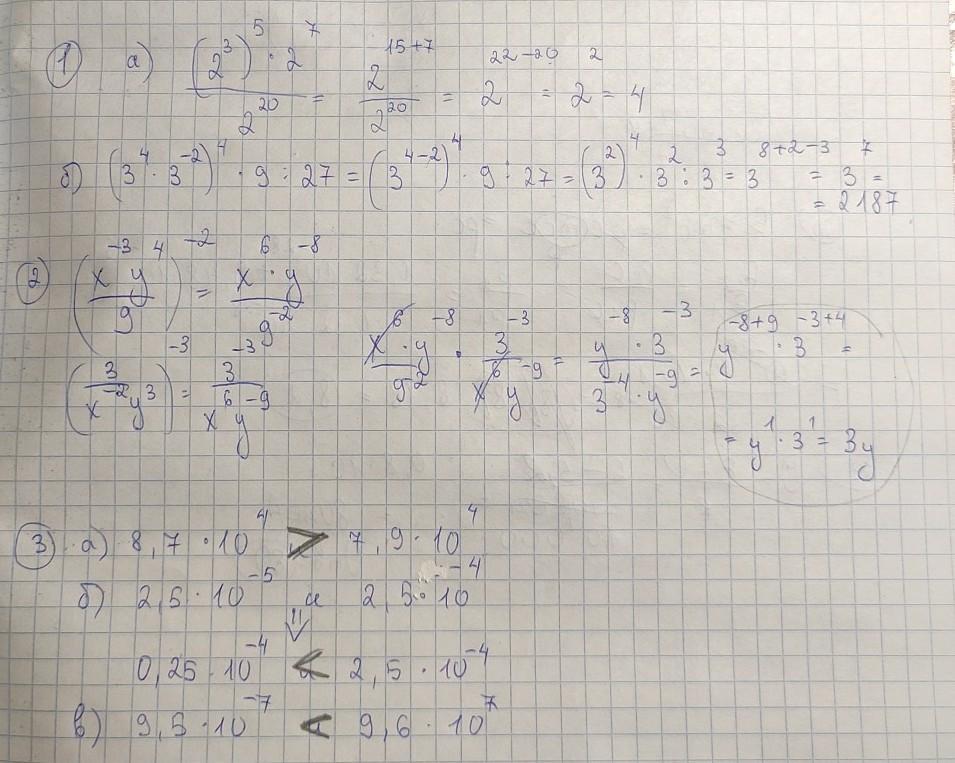 1 а) (2³)⁵ · 2⁷ / 2²⁰ = 2¹⁵⁺⁷ / 2²⁰ = 2²²⁻²⁰ = 2² = 4
б) (3⁴ · 3⁻²)⁴ · 9 : 27 = (3⁴⁻²)⁴ · 9 : 27 = (3²)⁴ · 3² : 3³ = 3⁸⁺²⁻³ = 3⁷ =
= 2187
2 (x⁻³ y⁴ / 9)⁻² = x⁶ · y⁻⁸ / 9⁻²
(3 / x⁻² y³)⁻³ = 3⁻³ / x⁶ y⁻⁹
x⁶ · y⁻⁸ / 9⁻² · 3⁻³ / x⁶ y⁻⁹ = y⁻⁸ · 3⁻³ / 3⁻⁴ · y⁻⁹ = y⁻⁸⁺⁹ · 3⁻³⁺⁴ =
= y¹ · 3¹ = 3y
3 а) 8,7 · 10⁴ > 7,9 · 10⁴
б) 2,5 · 10⁻⁵ и 2,5 · 10⁻⁴
⇓
0,25 · 10⁻⁴ < 2,5 · 10⁻⁴
в) 9,5 · 10⁻⁷ < 9,6 · 10⁷